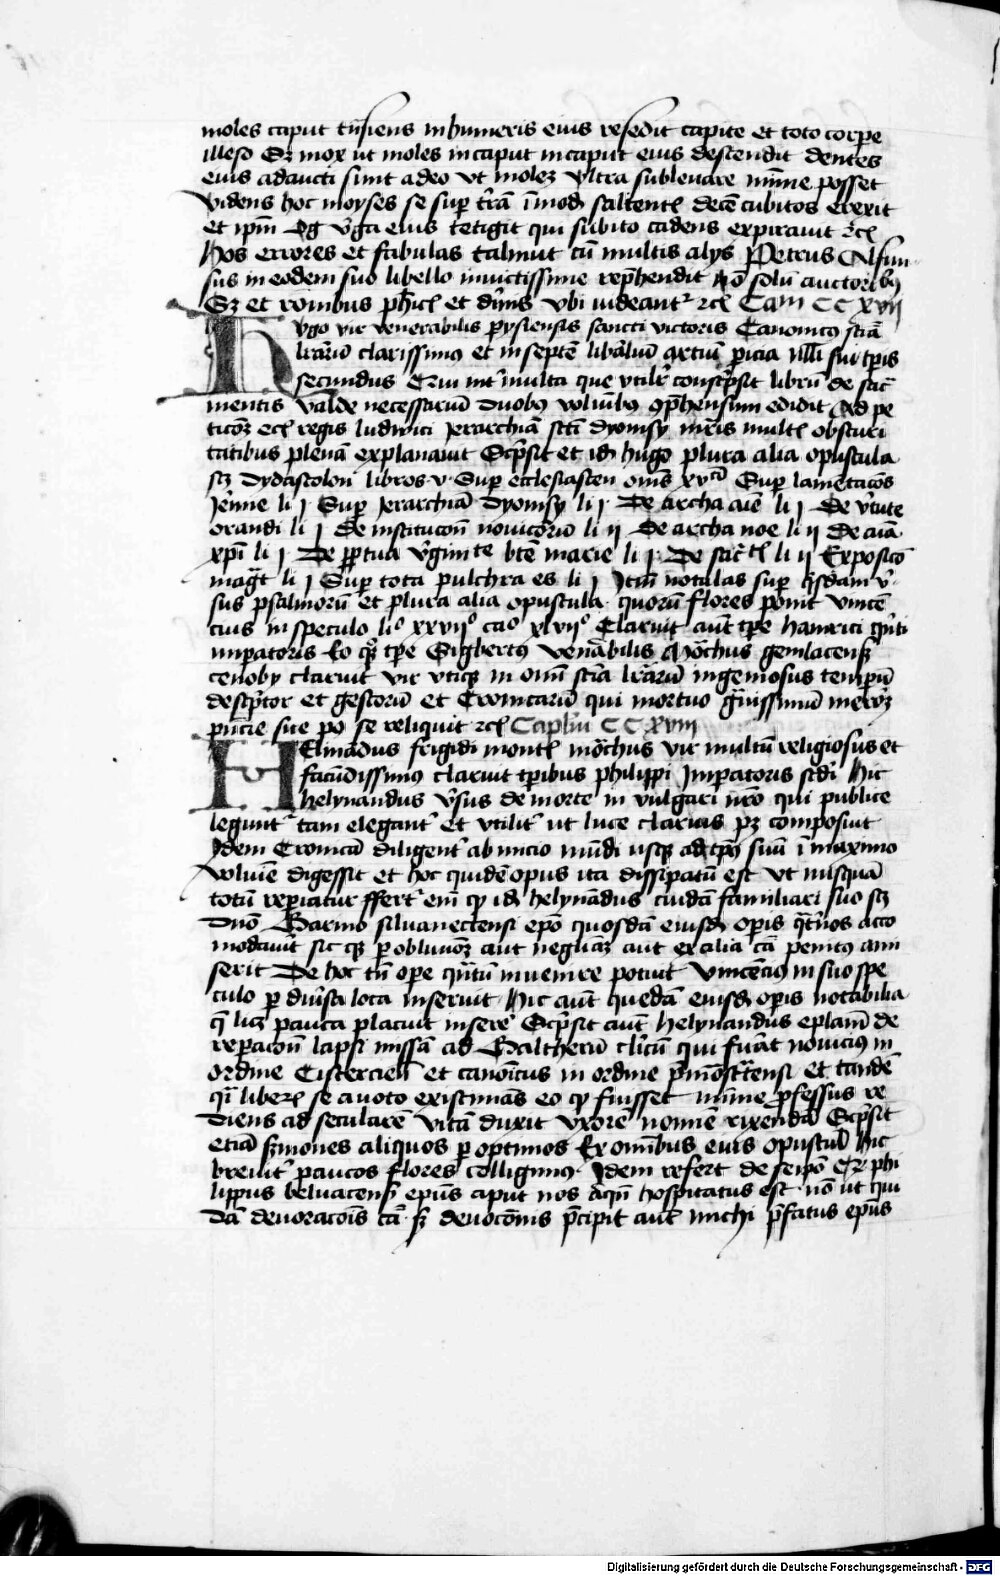 moles caput tn̄siens in humeris eius resedit capite et toto corpe
illeso Sꝫ mox ut moles in caput in caput eius descendit dentes
eius adaucti sunt adeo vt molez vltra subleuare mīme posset
Videns hoc moyses se sup tr̄a ī modū saltent̄ decē cubitos erexit
et ip̄m Og v̓ga eius tetigit qui subito cadens expirauit ⁊cꝫ
Hos errores et fabulas talmut cū multis alijs Petrus Alfun
sus in eodem suo libello inuictissime rep̄hendit nō solū auctoribꝰ
Sꝫ et romibus ph̓ic̄ et diuīs vbi uideant᷑ ⁊cꝫ Cam CC xvii
Hvgo vir venerabilis pysiensis sancti victoris Canonicꝰ sciā
lr̄arū clarissimꝰ et in septē lib̓aliū artiū p̱icia nlli sui tp̱is
secundus Erui int̓ multa que vtilit̓ consc̓psit librū de sac̓
mentis valde necessariū duobꝰ voluībꝰ ꝯp̄hensum edidit Ad pe
ticoꝫ ec̄ regis ludwici Jerarchiā sc̄ti dyonisy mr̄is multꝭ obscuri
tatibus plenā explanauit Sc̓psit et idē hugo plura alia opuscula
scꝫ dydascolon libros v Sup ecclesiasten om̄s xvᶜⁱ Sup lamētacōs
Jer̄me li j Sup Jerarchiā dyonisy li j De archa aīe li j De v̓tute
orandi li j De institucōn nouicorū li ii De archa noe li ii De aīa
xp̄i li j De pp̱tua v̓ginite bt̄e marie li j De sac̓tꝭ li ii Exposicō
mag̓t li j Sup tota pulchra es li j Itm̄ notulas sup q̓sdam v̓
sus psalmorū et plura alia opuscula quorū flores ponit vincē
cius in speculo liᵒ xxviiᵒ caᵒ xlviiᵒ Claruit aut̄ tp̱e hainrici q̓nti
imp̱atoris Eo qꝫ tp̱e Sigbertꝰ ven̓abilis Mōchus gemlacensꝫ
cenoby claruit vir vtiqꝫ in om̄i sciā lr̄arū ingeniosus tempꝝ
desc̓ptor et gestorū et Cronicarū qui mortuo g̓uissimū merorꝫ
pn̄cie sue po se reliquit ⁊cꝫ Caplm̄ CC xviii
HElinādus frigidi montꝭ mōchus vir multū religiosus et
facūdissimꝰ claruit tp̱ibus philippi Jmp̱atoris scd̓i Hic
helynandus v̓sus de morte in vulgari nr̄o qui publice
legunt᷑ tam elegant᷑ et vtilit᷑ ut luce clarius pꝫ composuit
Jdem Cronicā diligent᷑ ab inicio mūdi usqꝫ ad tp̱s suū ī maximo
voluīe digessit et hoc quidē opus ita dissipatū est vt nusquā
totū rep̱iatur ffert᷑ em̄ qꝫ idē helynādus cuidā familiari suo scꝫ
dn̄o Garino siluanectensi ep̄o quosdā eiusdē op̱is q̓t̓nos acco
modauit sic qꝫ p̱ obliuioꝫ aut negliaꝫ aut ex alia cā penitꝰ ami
serit De hoc tn̄ op̱e q̓ntū inuenire potuit Vincēcius in suo spe
culo p̱ diu̓sa loca inseruit Hic aut̄ quedā eiusdē op̱is notabilia
q̄ licꝫ pauca placuit insere᷑ Sc̓psit aut̄ helynandus ep̄lam de
rep̱acōn lapsi missā ad Galtherū cl̓icū qui fuāt nouicius in
ordine Cistercien̄ et canonicus in ordine p̓mōst̓tensi et tandē
q̓i liberē se a uoto existimās eo qꝫ fuisset mīme p̓fessus re
diens ad secularē vitā duxit vxorē nomīe rixendā Sc̓psit
eciā sꝫmones aliquos p̱optimos Ex omībus eius opusculꝭ Hic
breuit᷑ paucos flores colligimꝰ Jdem refert de seip̄o Sꝫ phi
lippus beluacensꝭ ep̄us apud nos aliqn̄ hospitatus est nō ut qui
dā deuoracōis cā sꝫ deuocōnis p̓cipit aut̄ michi p̓fatus ep̄us
Digitalisierung gefördert durch die Deutsche Forschungsgemeinschaft - DFG